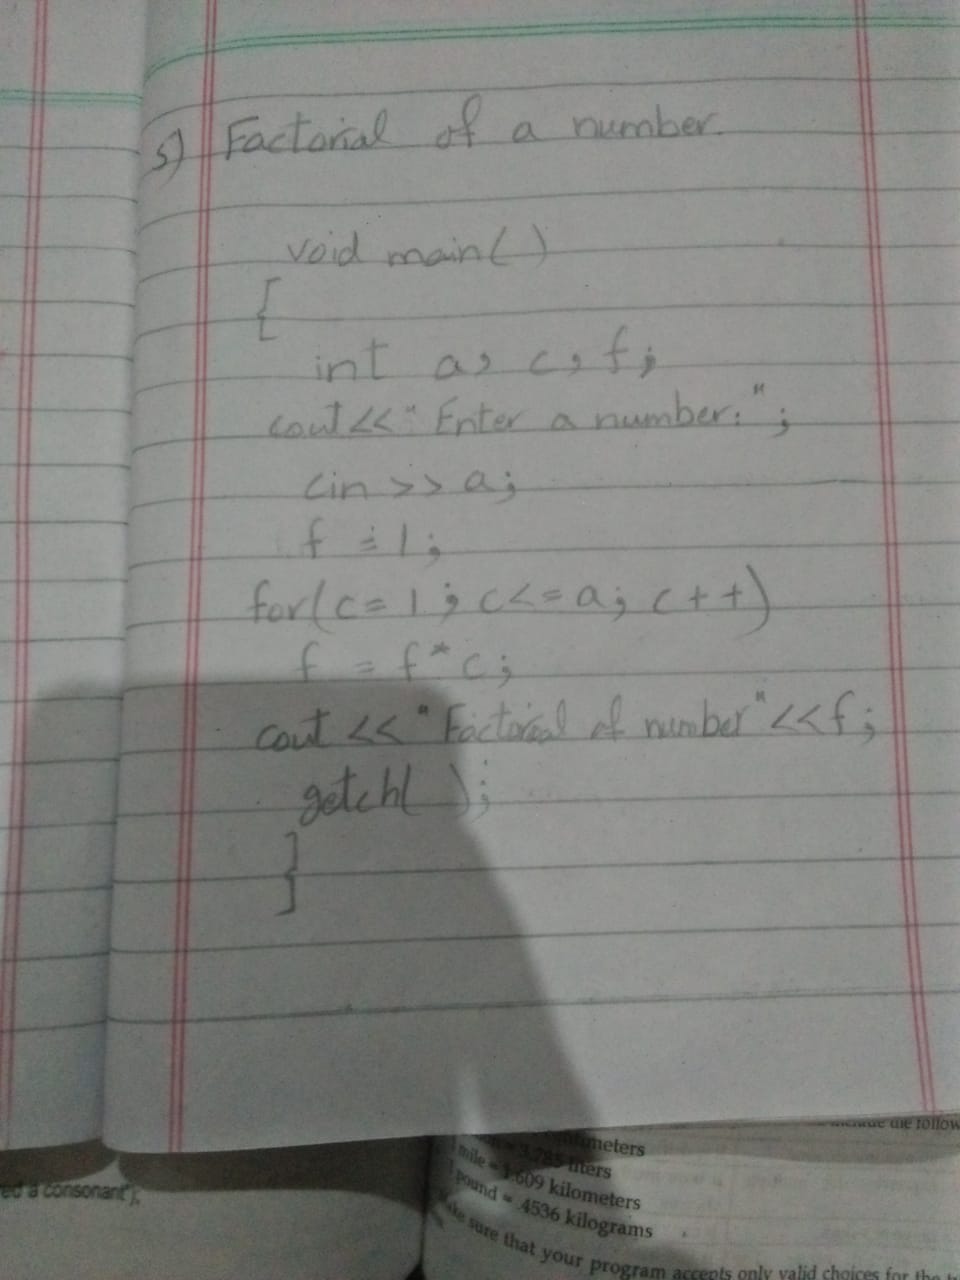 5) Factorial of a number.
void main()
{
int a, c, f;
cout<<"Enter a number:";
cin>>a;
f = 1;
for(c=1; c<=a; c++)
f = f*c;
cout <<"Factorial of number"<<f;
getch( );
}
the follow
liters
mile = 1.609 kilometers
pound = .4536 kilograms
sure that your program accepts only valid choices for the
a consonant");